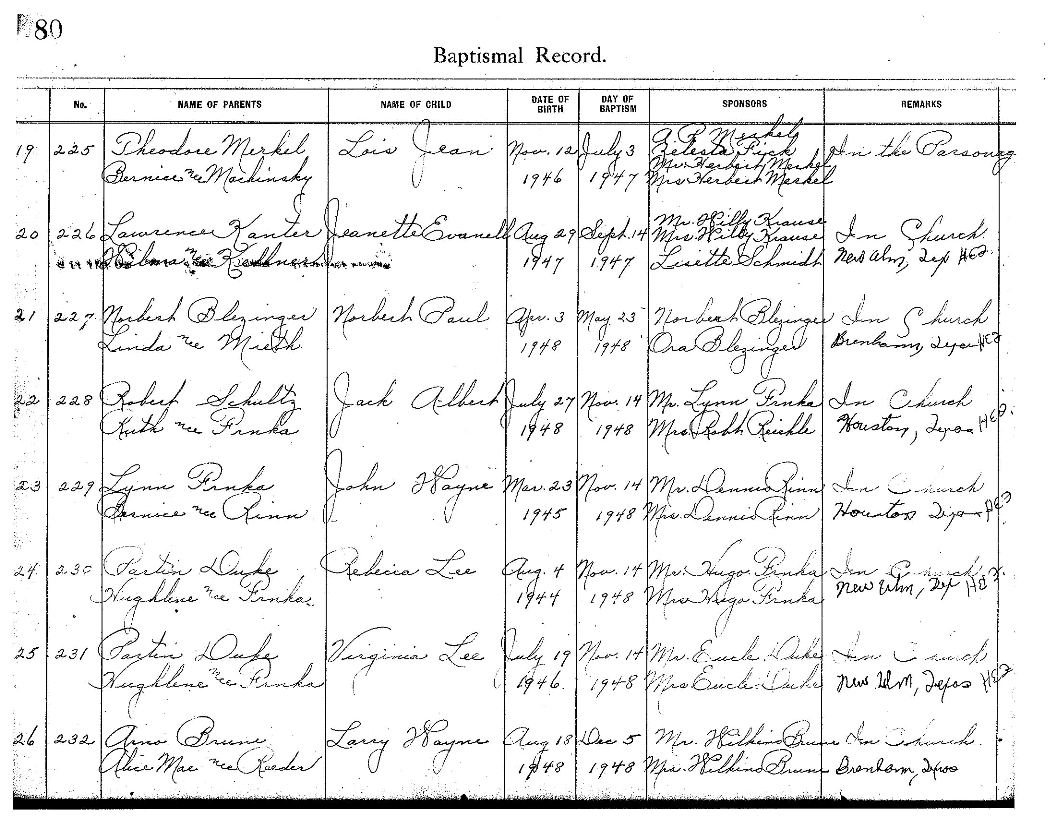 80
Baptismal Record.
No. NAME OF PARENTS NAME OF CHILD DATE OF BIRTH DAY OF BAPTISM SPONSORS REMARKS
A. P. Merkel
19 225 Theodore Merkel Lois Jean Nov. 12 July 3 Celesta Fick In the Parsonag
Mr. Herbert Merkel
Bernice nee Machinsky 1946 1947 Mrs Herbert Merkel
Mr. Willy Krause
20 226 Lawrence Kanter Jeanette Evanell Aug 29 Sept. 14 Mrs. Willy Krause In Church
Wilma nee 1947 1947 Lisette Schmidt New Ulm, Tex HE2.
21 227 Norbert Blezinger Norbert Paul Apr. 3 May 23 Norbert Blezinger In Church
Linda nee Mieth 1948 1948 Ora Blezinger Brenham, Texas HE2
22 228 Robert Schultz Jack Albert July 27 Nov. 14 Mr. Lynn Frnka In Church
Ruth nee Frnka 1948 1948 Mrs. Robt. Reichle Houston, Texas HE2.
23 229 Lynn Frnka John Wayne Mar. 23 Nov. 14 Mr. Dennis Rinn In Church
Bernice nee Rinn 1945 1948 Mrs. Dennis Rinn Houston Texas HE2
24 230 Partin Duke Rebecca Lee Aug. 4 Nov. 14 Mr. Hugo Frnka In Church
Hughlene nee Frnka. 1944 1948 Mrs Hugo Frnka New Ulm, Tex HE2.
25 231 Partin Duke Virginia Lee July 19 Nov. 14 Mr. Eucle Duke In Church
Hughlene nee Frnka 1946. 1948 Mrs Eucle Duke New Ulm, Texas HE2
26 232 Arno Brune Larry Wayne Aug 18 Dec 5 Mr. Wilkins Brune In Church.
Alice Mae nee Roeder 1948 1948 Mrs. Wilkins Brune Brenham, Texas